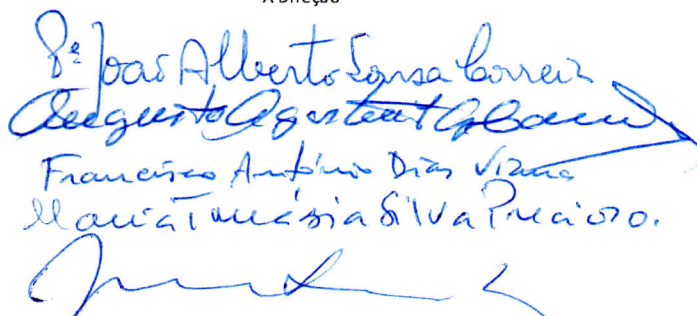 A Direção
Pe João Alberto Sousa Correia
Augusto Agostinho
Francisco António Dias Viana
Maria Tomásia Silva Precioso.